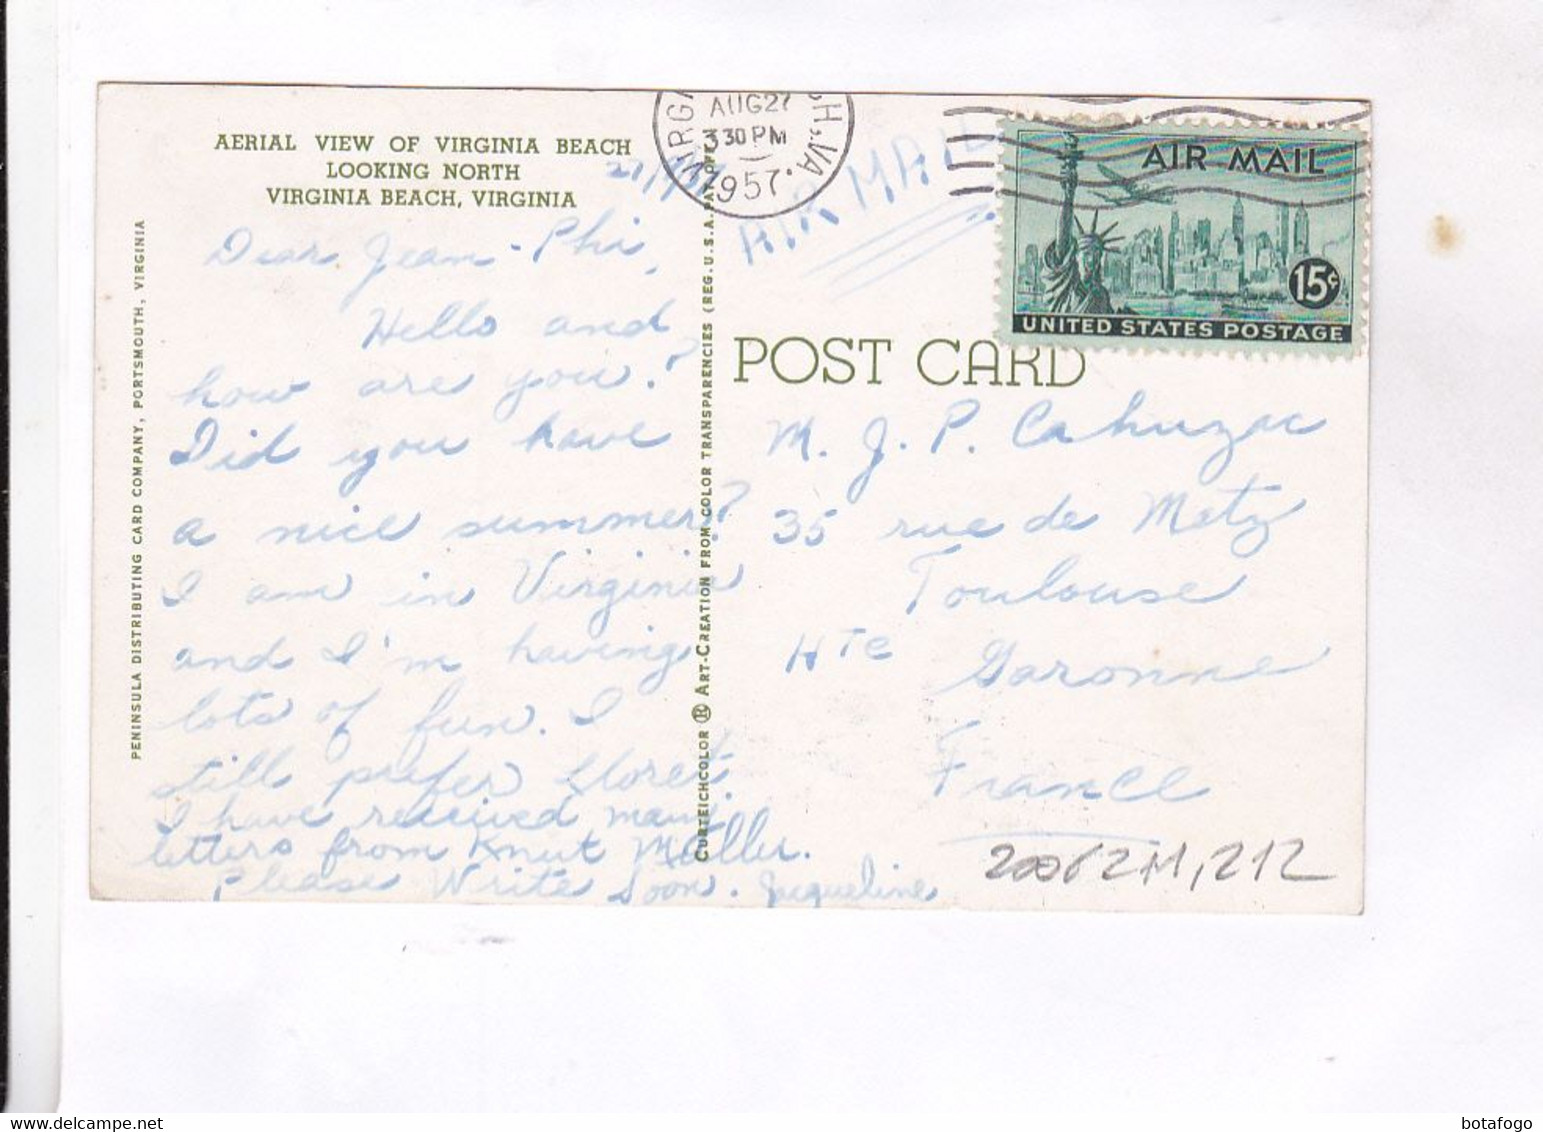 AERIAL VIEW OF VIRGINIA BEACH
LOOKING NORTH
VIRGINIA BEACH, VIRGINIA
Dear Jean-Phi,
Hello and
how are you?
Did you have
a nice summer?
I am in Virginia
and I'm having
lots of fun. I
still prefer Lloret.
I have received many
letters from Knut Müller.
Please Write Soon. Jacqueline
PENINSULA DISTRIBUTING CARD COMPANY, PORTSMOUTH, VIRGINIA
CURTEICHCOLOR ® ART-CREATION FROM COLOR TRANSPARENCIES (REG. U.S.A. PAT. OFF.)
AUG 27
3 30 PM
1957
VA.
AIR MAIL
AIR MAIL
15¢
UNITED STATES POSTAGE
POST CARD
M. J. P. Cahuzac
35 rue de Metz
Toulouse
Hte Garonne
France
website delcampe.net
botafogo